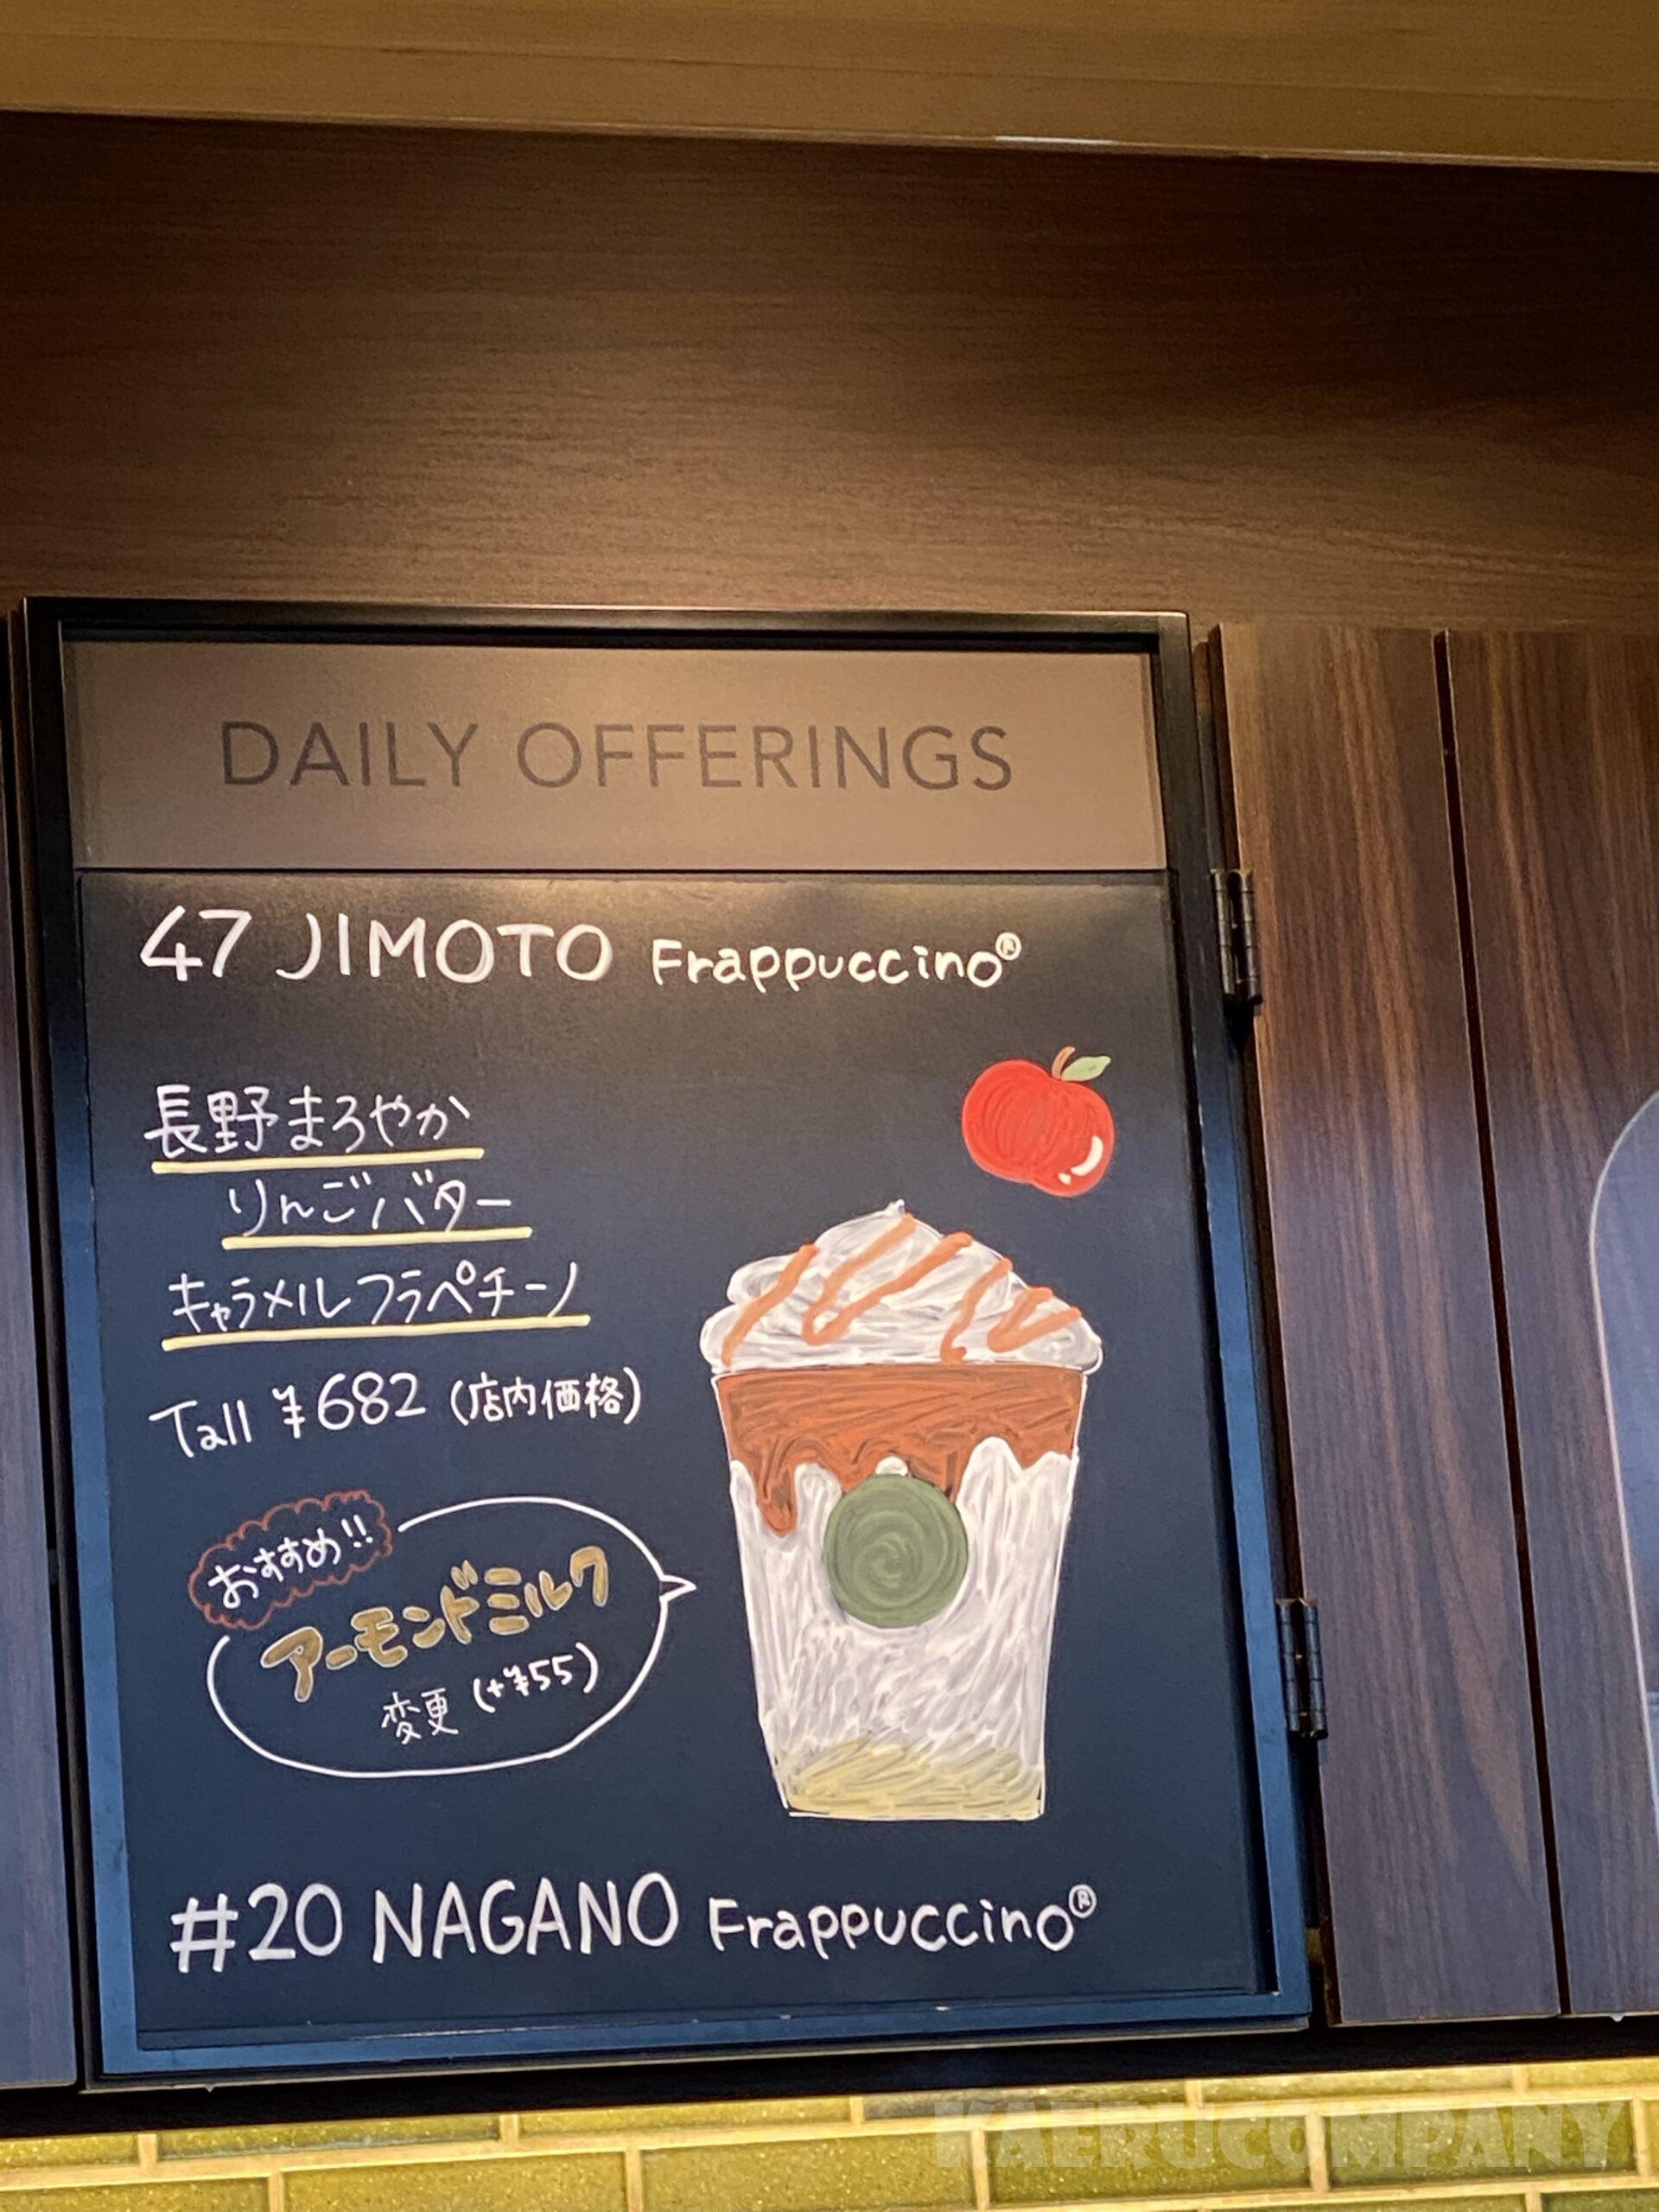 DAILY OFFERINGS
47 JIMOTO Frappuccino®
長野まろやか
りんごバター
キャラメルフラペチーノ
Tall ¥682 (店内価格)
おすすめ!!
アーモンドミルク
変更 (+¥55)
#20 NAGANO Frappuccino®
KAERUCOMPANY